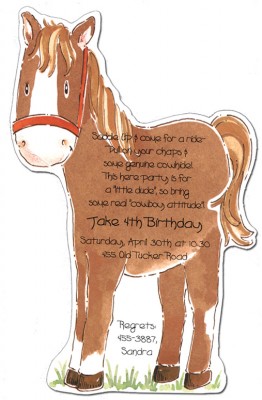 Saddle Up & come for a ride-
Pull on your chaps &
some genuine cowhide!
This here party is for
a "little dude", so bring
some real "cowboy attitude"!
Jake 4th Birthday
Saturday, April 30th at 10:30
455 Old Tucker Road
Regrets:
455-3887,
Sandra